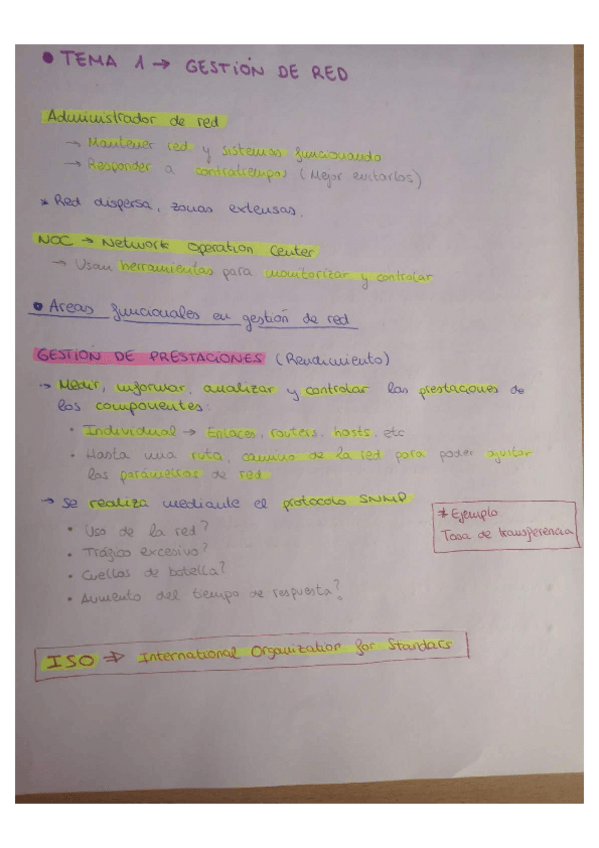 • TEMA 1 → GESTIÓN DE RED
Administrador de red
→ Mantener red y sistemas funcionando
→ Responder a contratiempos (Mejor evitarlos)
* Red dispersa, zonas extensas.
NOC → Network Operation Center
→ Usan herramientas para monitorizar y controlar
• Areas funcionales en gestión de red
GESTIÓN DE PRESTACIONES (Rendimiento)
→ Medir, informar, analizar y controlar las prestaciones de
los componentes:
• Individual → Enlaces, routers, hosts, etc
• Hasta una ruta, camino de la red para poder ajustar
los parámetros de red
→ Se realiza mediante el protocolo SNMP
* Ejemplo
Tasa de transferencia
• Uso de la red?
• Tráfico excesivo?
• Cuellos de botella?
• Aumento del tiempo de respuesta?
ISO ⇒ International Organization for Standars